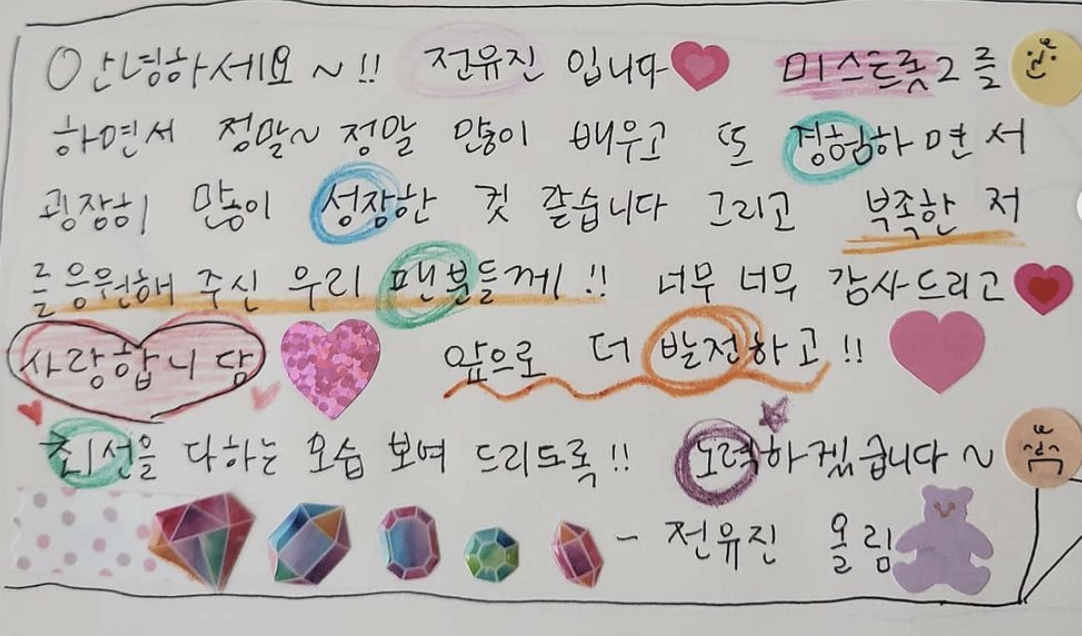 안녕하세요 ~!! 전유진 입니다 미스트롯2 를
하면서 정말~ 정말 많이 배우고 또 경험하면서
굉장히 많이 성장한 것 같습니다 그리고 부족한 저
를 응원해 주신 우리 팬분들께!! 너무 너무 감사드리고
사랑합니당 앞으로 더 발전하고!!
최선을 다하는 모습 보여 드리도록!! 노력하겠습니다 ~
- 전유진 올림